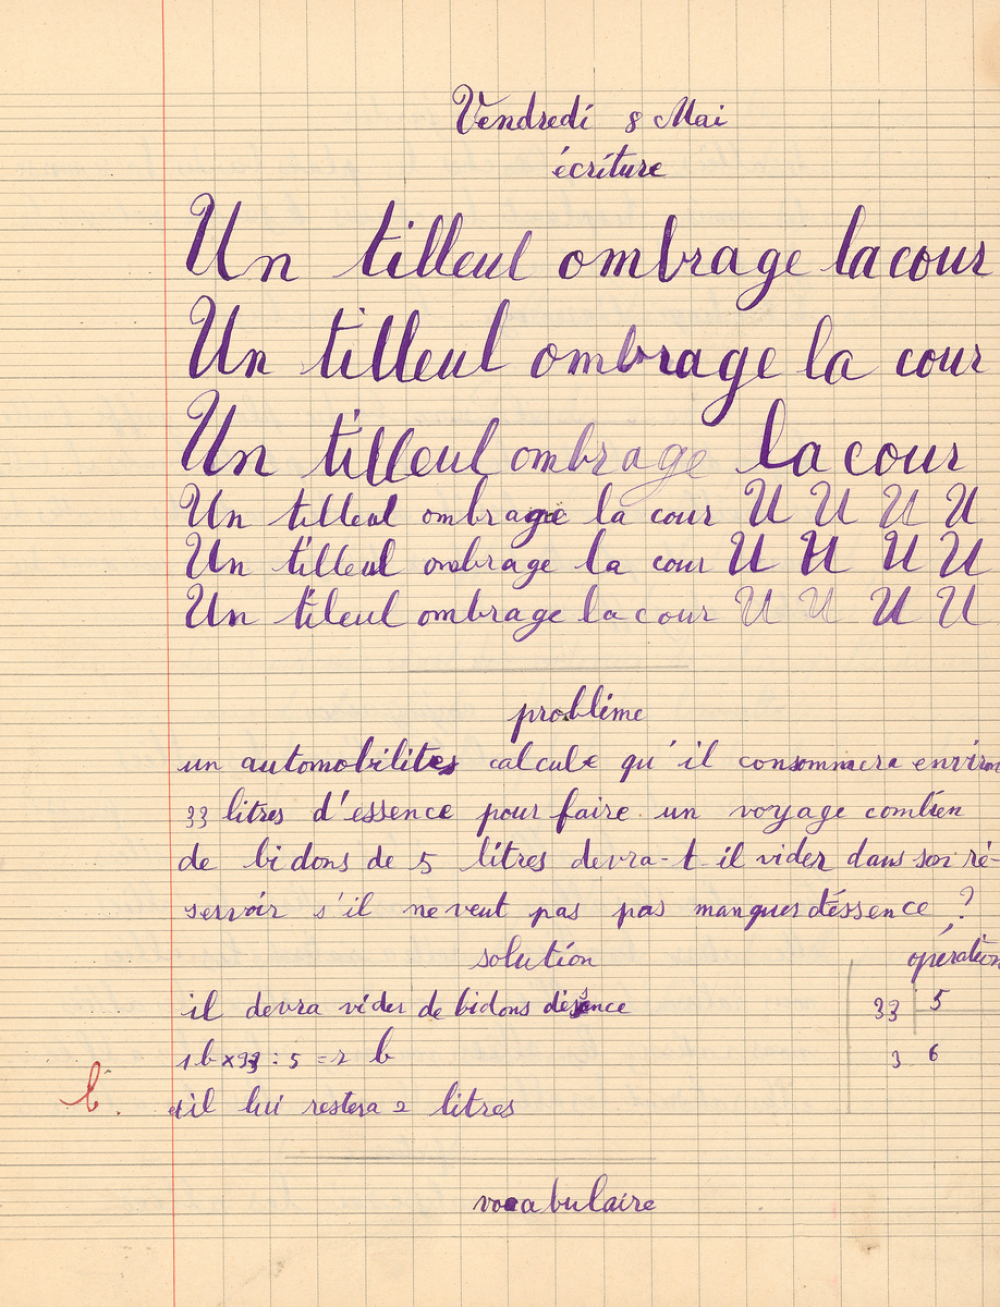 Vendredi 8 Mai
écriture
Un tilleul ombrage la cour
Un tilleul ombrage la cour
Un tilleul ombrage la cour
Un tilleul ombrage la cour U U U U
Un tilleul ombrage la cour U U U U
Un tileul ombrage la cour U U U U
problème
un automobilites calcule qu'il consommera environ
33 litres d'essence pour faire un voyage combien
de bidons de 5 litres devra-t-il vider dans son ré-
servoir s'il ne veut pas pas manquer d'éssence ?
solution
opération
il devra vider de bidons
33 5
1 b x 33 : 5 = 2 b
3 6
b.
il lui restera 2 litres
vocabulaire